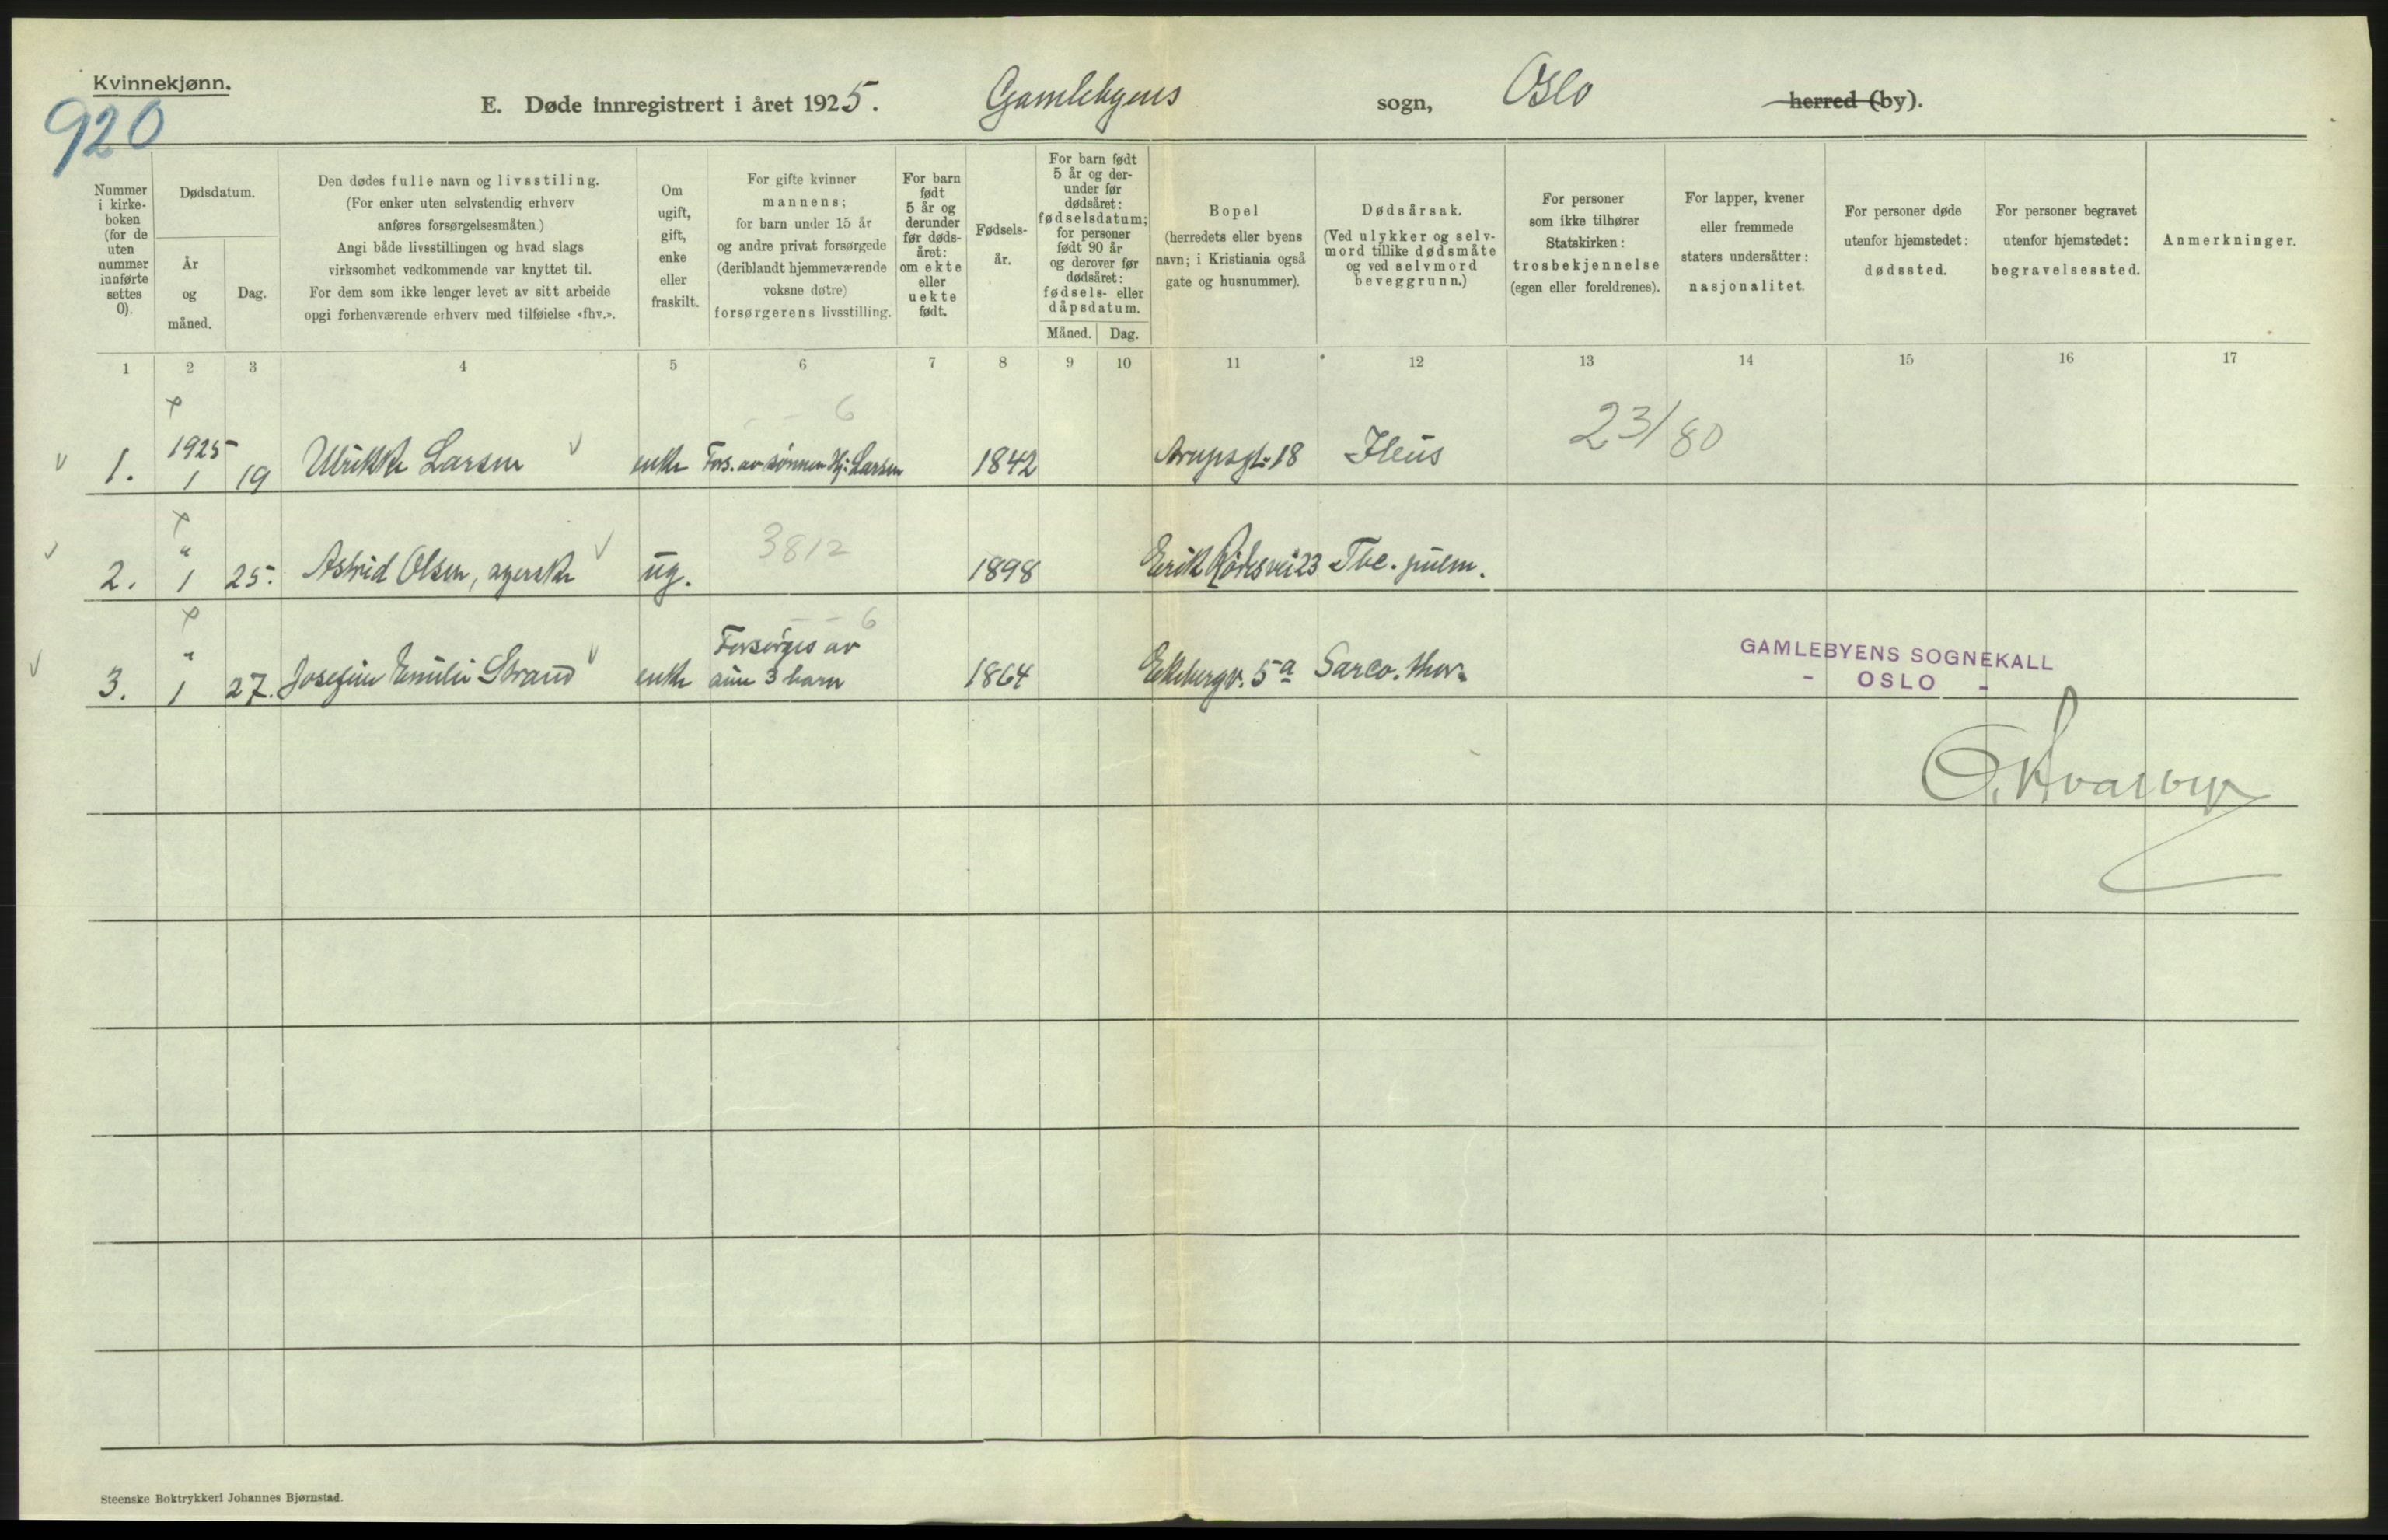 Kvinnekjønn.
920
E. Døde innregistrert i året 1925. Gamlebyens sogn, Oslo herred (by).
Nummer i kirke-boken (for de uten nummer innførte settes 0).
Dødsdatum.
År og måned.
Dag.
Den dødes fulle navn og livsstiling.
(For enker uten selvstendig erhverv
anføres forsørgelsesmåten.)
Angi både livsstillingen og hvad slags
virksomhet vedkommende var knyttet til.
For dem som ikke lenger levet av sitt arbeide
opgi forhenværende erhverv med tilføielse «fhv.».
Om
ugift,
gift,
enke
eller
fraskilt.
For gifte kvinner
mannens;
for barn under 15 år
og andre privat forsørgede
(deriblandt hjemmeværende
voksne døtre)
forsørgerens livsstilling.
For barn
født
5 år og
derunder
før døds-
året:
om ekte
eller
uekte
født.
Fødsels-
år.
For barn født
5 år og der-
under før
dødsåret:
fødselsdatum;
for personer
født 90 år
og derover før
dødsåret:
fødsels- eller
dåpsdatum.
Måned. Dag.
Bopel
(herredets eller byens
navn; i Kristiania også
gate og husnummer).
Dødsårsak.
(Ved ulykker og selv-
mord tillike dødsmåte
og ved selvmord
beveggrunn.)
For personer
som ikke tilhører
Statskirken:
trosbekjennelse
(egen eller foreldrenes).
For lapper, kvener
eller fremmede
staters undersåtter:
nasjonalitet.
For personer døde
utenfor hjemstedet:
dødssted.
For personer begravet
utenfor hjemstedet:
begravelsessted.
Anmerkninger.
1 2 3 4 5 6 7 8 9 10 11 12 13 14 15 16 17
6 23/80
1925
1. 1 19 Ulrikke Larsen enke Fors. av sønnen Hj. Larsen 1842 Arupsgt. 18 Ileus
3812
2. " 1 25. Astrid Olsen, syerske ug. 1898 Erik Rørs vei 23 Tbc. pulm.
6
Forsørges av
3. " 1 27. Josefine Emilie Strand enke sine 3 barn 1864 Ekebergv. 5a Sarco. thor.
GAMLEBYENS SOGNEKALL
- OSLO -
Steenske Boktrykkeri Johannes Bjørnstad.